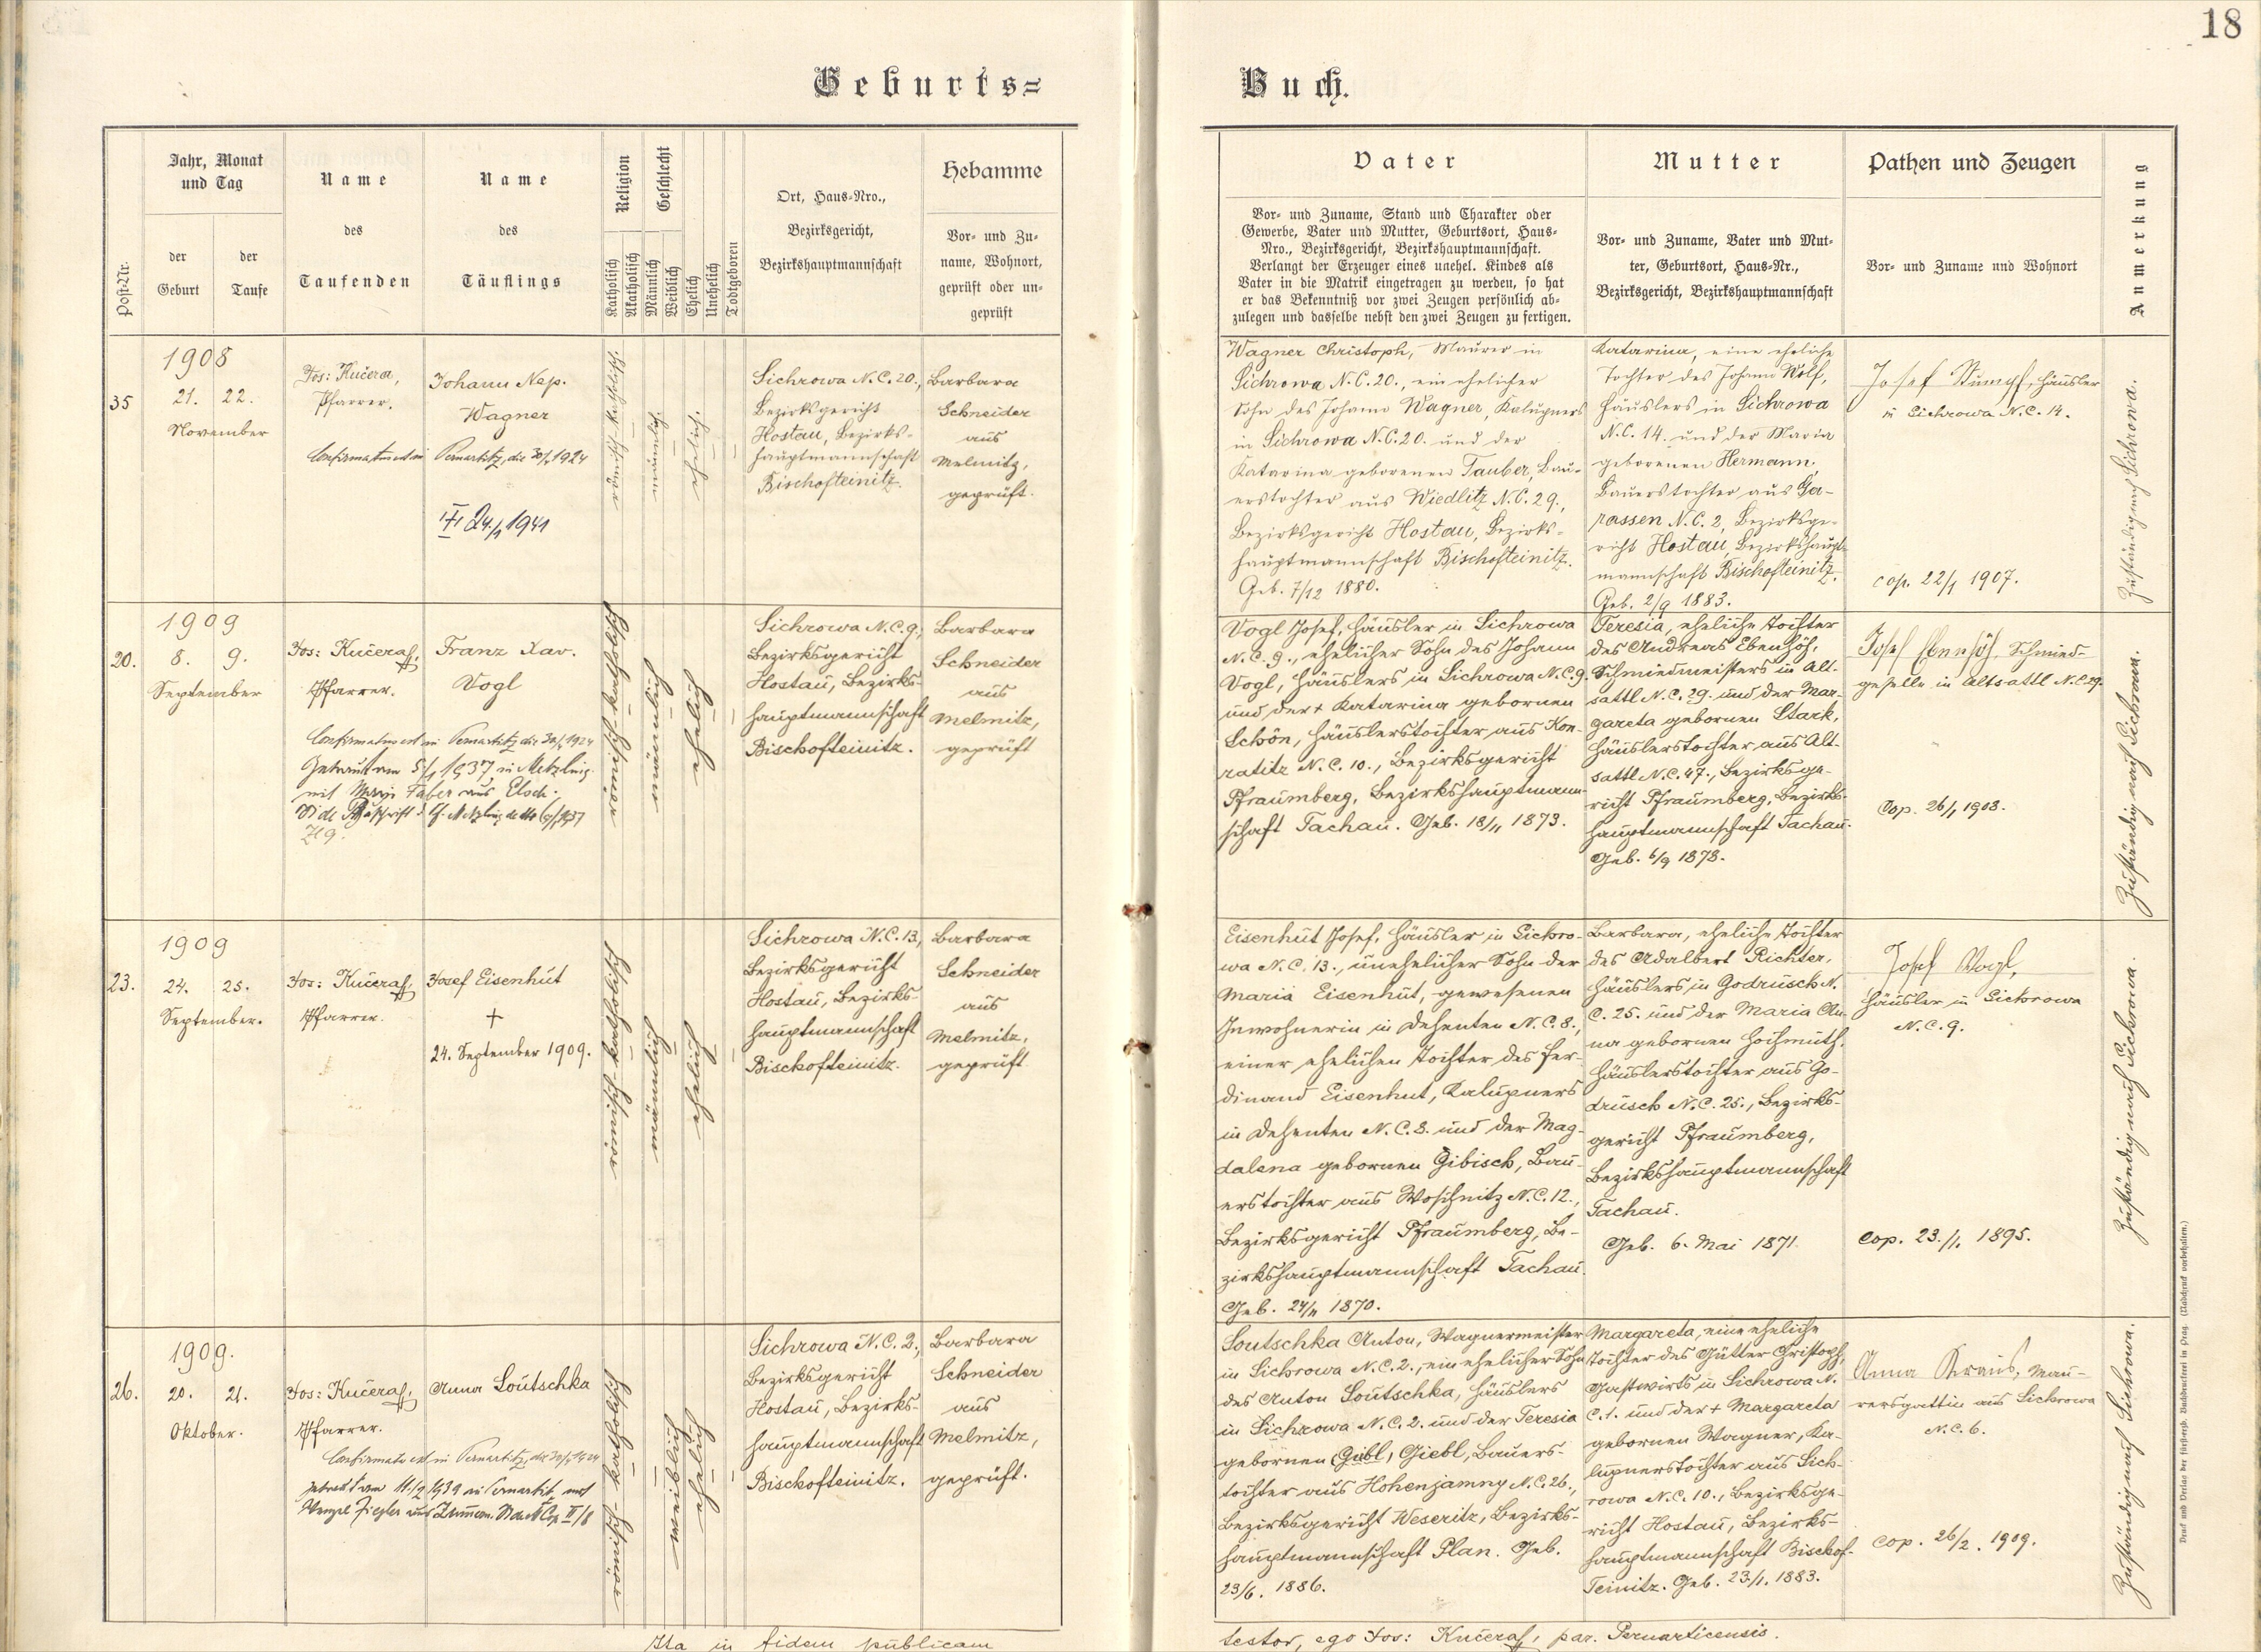 18
Geburts=
Buch.
Post-Nr.
Jahr, Monat
und Tag
der
Geburt
der
Taufe
Name
des
Taufenden
Name
des
Täuflings
Religion
Katholisch
Akatholisch
Geschlecht
Männlich
Weiblich
Ehelich
Unehelich
Todtgeboren
Ort, Haus-Nro.,
Bezirksgericht,
Bezirkshauptmannschaft
Hebamme
Vor- und Zu-
name, Wohnort,
geprüft oder un-
geprüft
Vater
Vor- und Zuname, Stand und Charakter oder
Gewerbe, Vater und Mutter, Geburtsort, Haus-
Nro., Bezirksgericht, Bezirkshauptmannschaft.
Verlangt der Erzeuger eines unehel. Kindes als
Vater in die Matrik eingetragen zu werden, so hat
er das Bekenntniß vor zwei Zeugen persönlich ab-
zulegen und dasselbe nebst den zwei Zeugen zu fertigen.
Mutter
Vor- und Zuname, Vater und Mut-
ter, Geburtsort, Haus-Nr.,
Bezirksgericht, Bezirkshauptmannschaft
Pathen und Zeugen
Vor- und Zuname und Wohnort
Anmerkung
35
1908
21. 22.
November
Jos: Kučera,
Pfarrer.
Johann Nep.
Wagner
Confirmatus est in Pernartitz, die 30/5 1924
24./1 1941
römisch-katholisch.
männlich.
ehelich.
Sichrowa N.C. 20.,
Bezirksgericht
Hostau, Bezirks-
hauptmannschaft
Bischofteinitz.
Barbara
Schneider
aus
Melmitz,
geprüft.
Wagner Christoph, Maurer in
Sichrowa N.C. 20., ein ehelicher
Sohn des Johann Wagner, Kalupners
in Sichrowa N.C. 20. und der
Katarina geborenen Tauber, Bau-
erstochter aus Wiedlitz N.C. 29.,
Bezirksgericht Hostau, Bezirks-
hauptmannschaft Bischofteinitz.
Geb. 7/12 1880.
Katarina, eine eheliche
Tochter des Johann Wolf,
Häuslers in Sichrowa
N.C. 14. und der Maria
geborenen Hermann,
Bauerstochter aus Ga-
rassen N.C. 2, Bezirksge-
richt Hostau, Bezirkshaupt-
mannschaft Bischofteinitz.
Geb. 2/9 1883.
Josef Stumpf, Häusler
in Sichrowa N.C. 14.
cop. 22/1 1907.
Zuständig nach Sichrowa.
20.
1909
8. 9.
September
Jos: Kučera,
Pfarrer.
Franz Xav.
Vogl
Confirmatus est in Pernartitz die 30/5 1924
Getraut am 5/1 1937 in Metzling
mit Marie Faber aus Elsch.
römisch-katholisch
männlich
ehelich
Sichrowa N.C. 9,
Bezirksgericht
Hostau, Bezirks-
hauptmannschaft
Bischofteinitz.
Barbara
Schneider
aus
Melmitz,
geprüft
Vogl Josef, Häusler in Sichrowa
N.C. 9., ehelicher Sohn des Johann
Vogl, Häuslers in Sichrowa N.C. 9.
und der + Katarina gebornen
Schön, Häuslerstochter aus Kon-
ratitz N.C. 10., Bezirksgericht
Pfraumberg, Bezirkshauptmann-
schaft Tachau. Geb. 18/11 1873.
Teresia, eheliche Tochter
des Andreas Ebenhöh,
Schmiedmeisters in Alt-
sattl N.C. 29. und der Mar-
gareta gebornen Stark,
Häuslerstochter aus Alt-
sattl N.C. 47., Bezirksge-
richt Pfraumberg, Bezirks-
hauptmannschaft Tachau.
Geb. 6/9 1878.
Josef Ebenhöh, Schmied-
geselle in Altsattl N.C. 29.
Cop. 26/1 1908.
Zuständig nach Sichrowa.
23.
1909
24. 25.
September.
Jos: Kučera,
Pfarrer.
Josef Eisenhut
+
24. September 1909.
römisch-katholisch
männlich
ehelich
Sichrowa N.C. 13,
Bezirksgericht
Hostau, Bezirks-
hauptmannschaft
Bischofteinitz.
Barbara
Schneider
aus
Melmitz,
geprüft
Eisenhut Josef, Häusler in Sichro-
wa N.C. 13., unehelicher Sohn der
Maria Eisenhut, gewesenen
Inwohnerin in Dehenten N.C. 8.,
einer ehelichen Tochter des Fer-
dinand Eisenhut, Kalupners
in Dehenten N.C. 8. und der Mag-
dalena gebornen Gibisch, Bau-
erstochter aus Woschnitz N.C. 12.,
Bezirksgericht Pfraumberg, Be-
zirkshauptmannschaft Tachau.
Geb. 24/11 1870.
Barbara, eheliche Tochter
des Adalbert Richter,
Häuslers in Godrusch N.
C. 25. und der Maria An-
na gebornen Hochmuth,
Häuslerstochter aus Go-
drusch N.C. 25., Bezirks-
gericht Pfraumberg,
Bezirkshauptmannschaft
Tachau.
Geb. 6. Mai 1871.
Josef Vogl,
Häusler in Sichrowa
N.C. 9.
cop. 23./1. 1895.
Zuständig nach Sichrowa.
26.
1909.
20. 21.
Oktober.
Jos: Kučera,
Pfarrer.
Anna Soutschka
Confirmata est in Pernartitz, die 30/5 1924
getraut am 11./2 1939 in Pernartitz mit
Wenzl Ziegler aus
römisch-katholisch
weiblich
ehelich
Sichrowa N.C. 2.,
Bezirksgericht
Hostau, Bezirks-
hauptmannschaft
Bischofteinitz.
Barbara
Schneider
aus
Melmitz,
geprüft.
Soutschka Anton, Wagnermeister
in Sichrowa N.C. 2., ein ehelicher Sohn
des Anton Soutschka, Häuslers
in Sichrowa N.C. 2. und der Teresia
gebornen Giebl, Bauers-
tochter aus Hohenjamny N.C. 26.,
Bezirksgericht Weseritz, Bezirks-
hauptmannschaft Plan. Geb.
23/6. 1886.
Margareta, eine eheliche
Tochter des Gütter Christoph,
Gastwirts in Sichrowa N.
C. 1. und der + Margareta
gebornen Wagner, Ka-
lupnerstochter aus Sich-
rowa N.C. 10., Bezirksge-
richt Hostau, Bezirks-
hauptmannschaft Bischof-
Teinitz. Geb. 23./1. 1883.
Anna Kraus, Mau-
rersgattin aus Sichrowa
N.C. 6.
cop. 26/2. 1909.
Zuständig nach Sichrowa.
Druck und Verlag der fürsterzb. Buchdruckerei in Prag. (Nachdruck vorbehalten.)
Ita in fidem publicam
testor, ego Jos: Kučera, par. Pernarticensis.